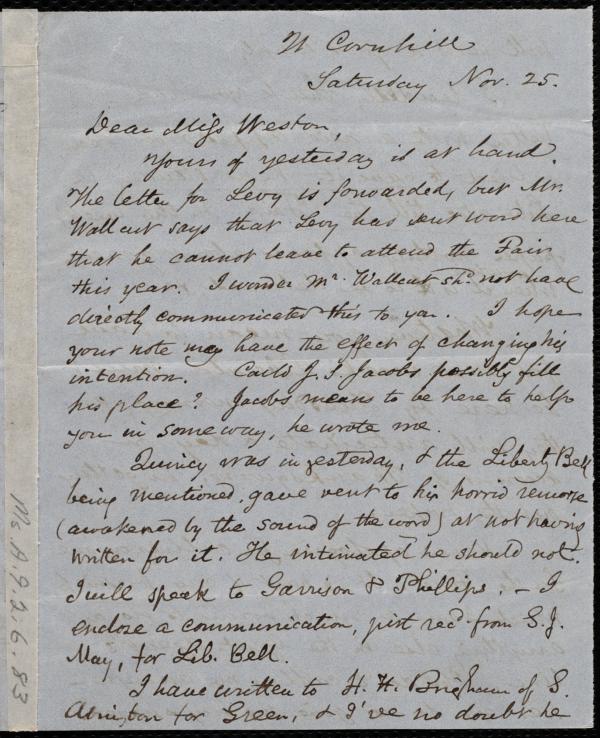 21 Cornhill
Saturday Nov. 25.
Dear Miss Weston,
Yours of yesterday is at hand.
The letter for Levy is forwarded, but Mr.
Wallcut says that Levy has sent word here
that he cannot leave to attend the Fair
this year. I wonder Mr. Wallcut shd. not have
directly communicated this to you. I hope
your note may have the effect of changing his
intention. Could J. S. Jacobs possibly fill
his place? Jacobs means to be here to help
you in some way, he wrote me.
Quincy was in yesterday, & the Liberty Bell
being mentioned, gave vent to his horrid remorse
(awakened by the sound of the word) at not having
written for it. He intimated he should not.
I will speak to Garrison & Phillips. – I
enclose a communication, just recd. from S. J.
May, for Lib. Bell.
I have written to H. H. Brigham of S.
Abington for Green, & I've no doubt he
Ms. A. 9. 2. 6. 83